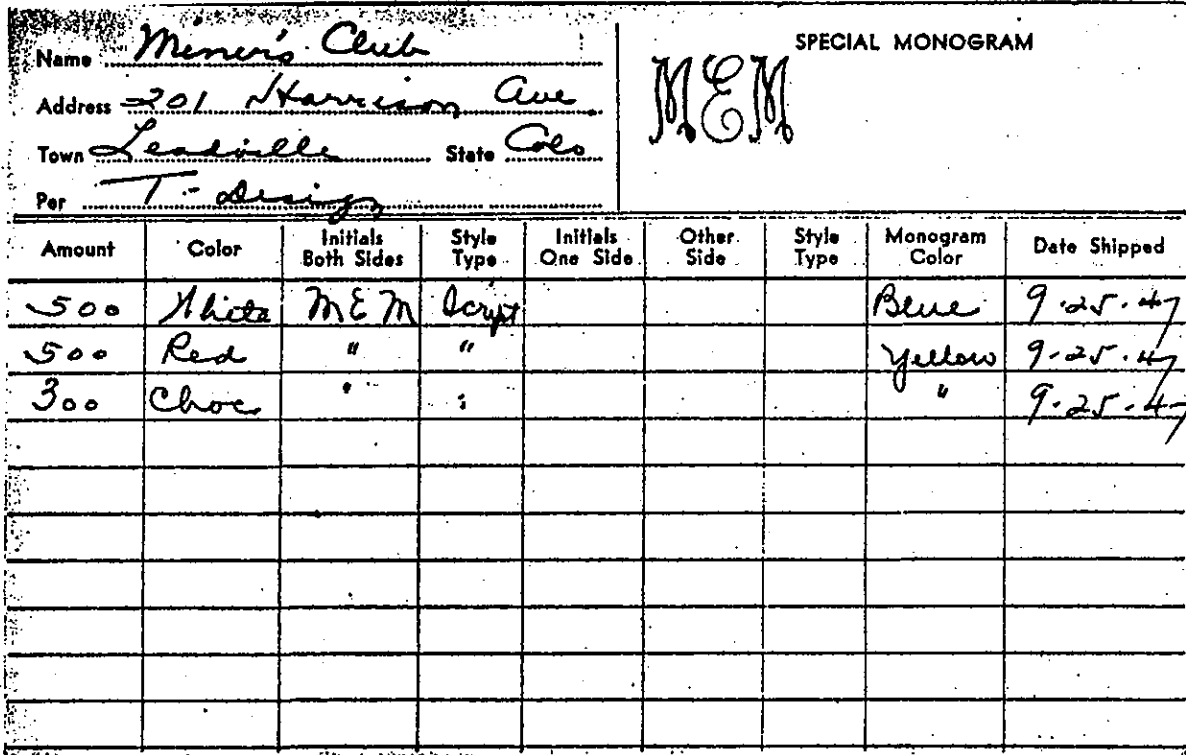 Name Miner's Club
Address 201 Harrison Ave
Town Leadville State Colo
Per T-Design
SPECIAL MONOGRAM
MEM
Amount Color Initials Both Sides Style Type Initials One Side Other Side Style Type Monogram Color Date Shipped
500 White MEM Script Blue 9.25.47
500 Red " " Yellow 9-25.47
300 Choc " " " 9.25.47